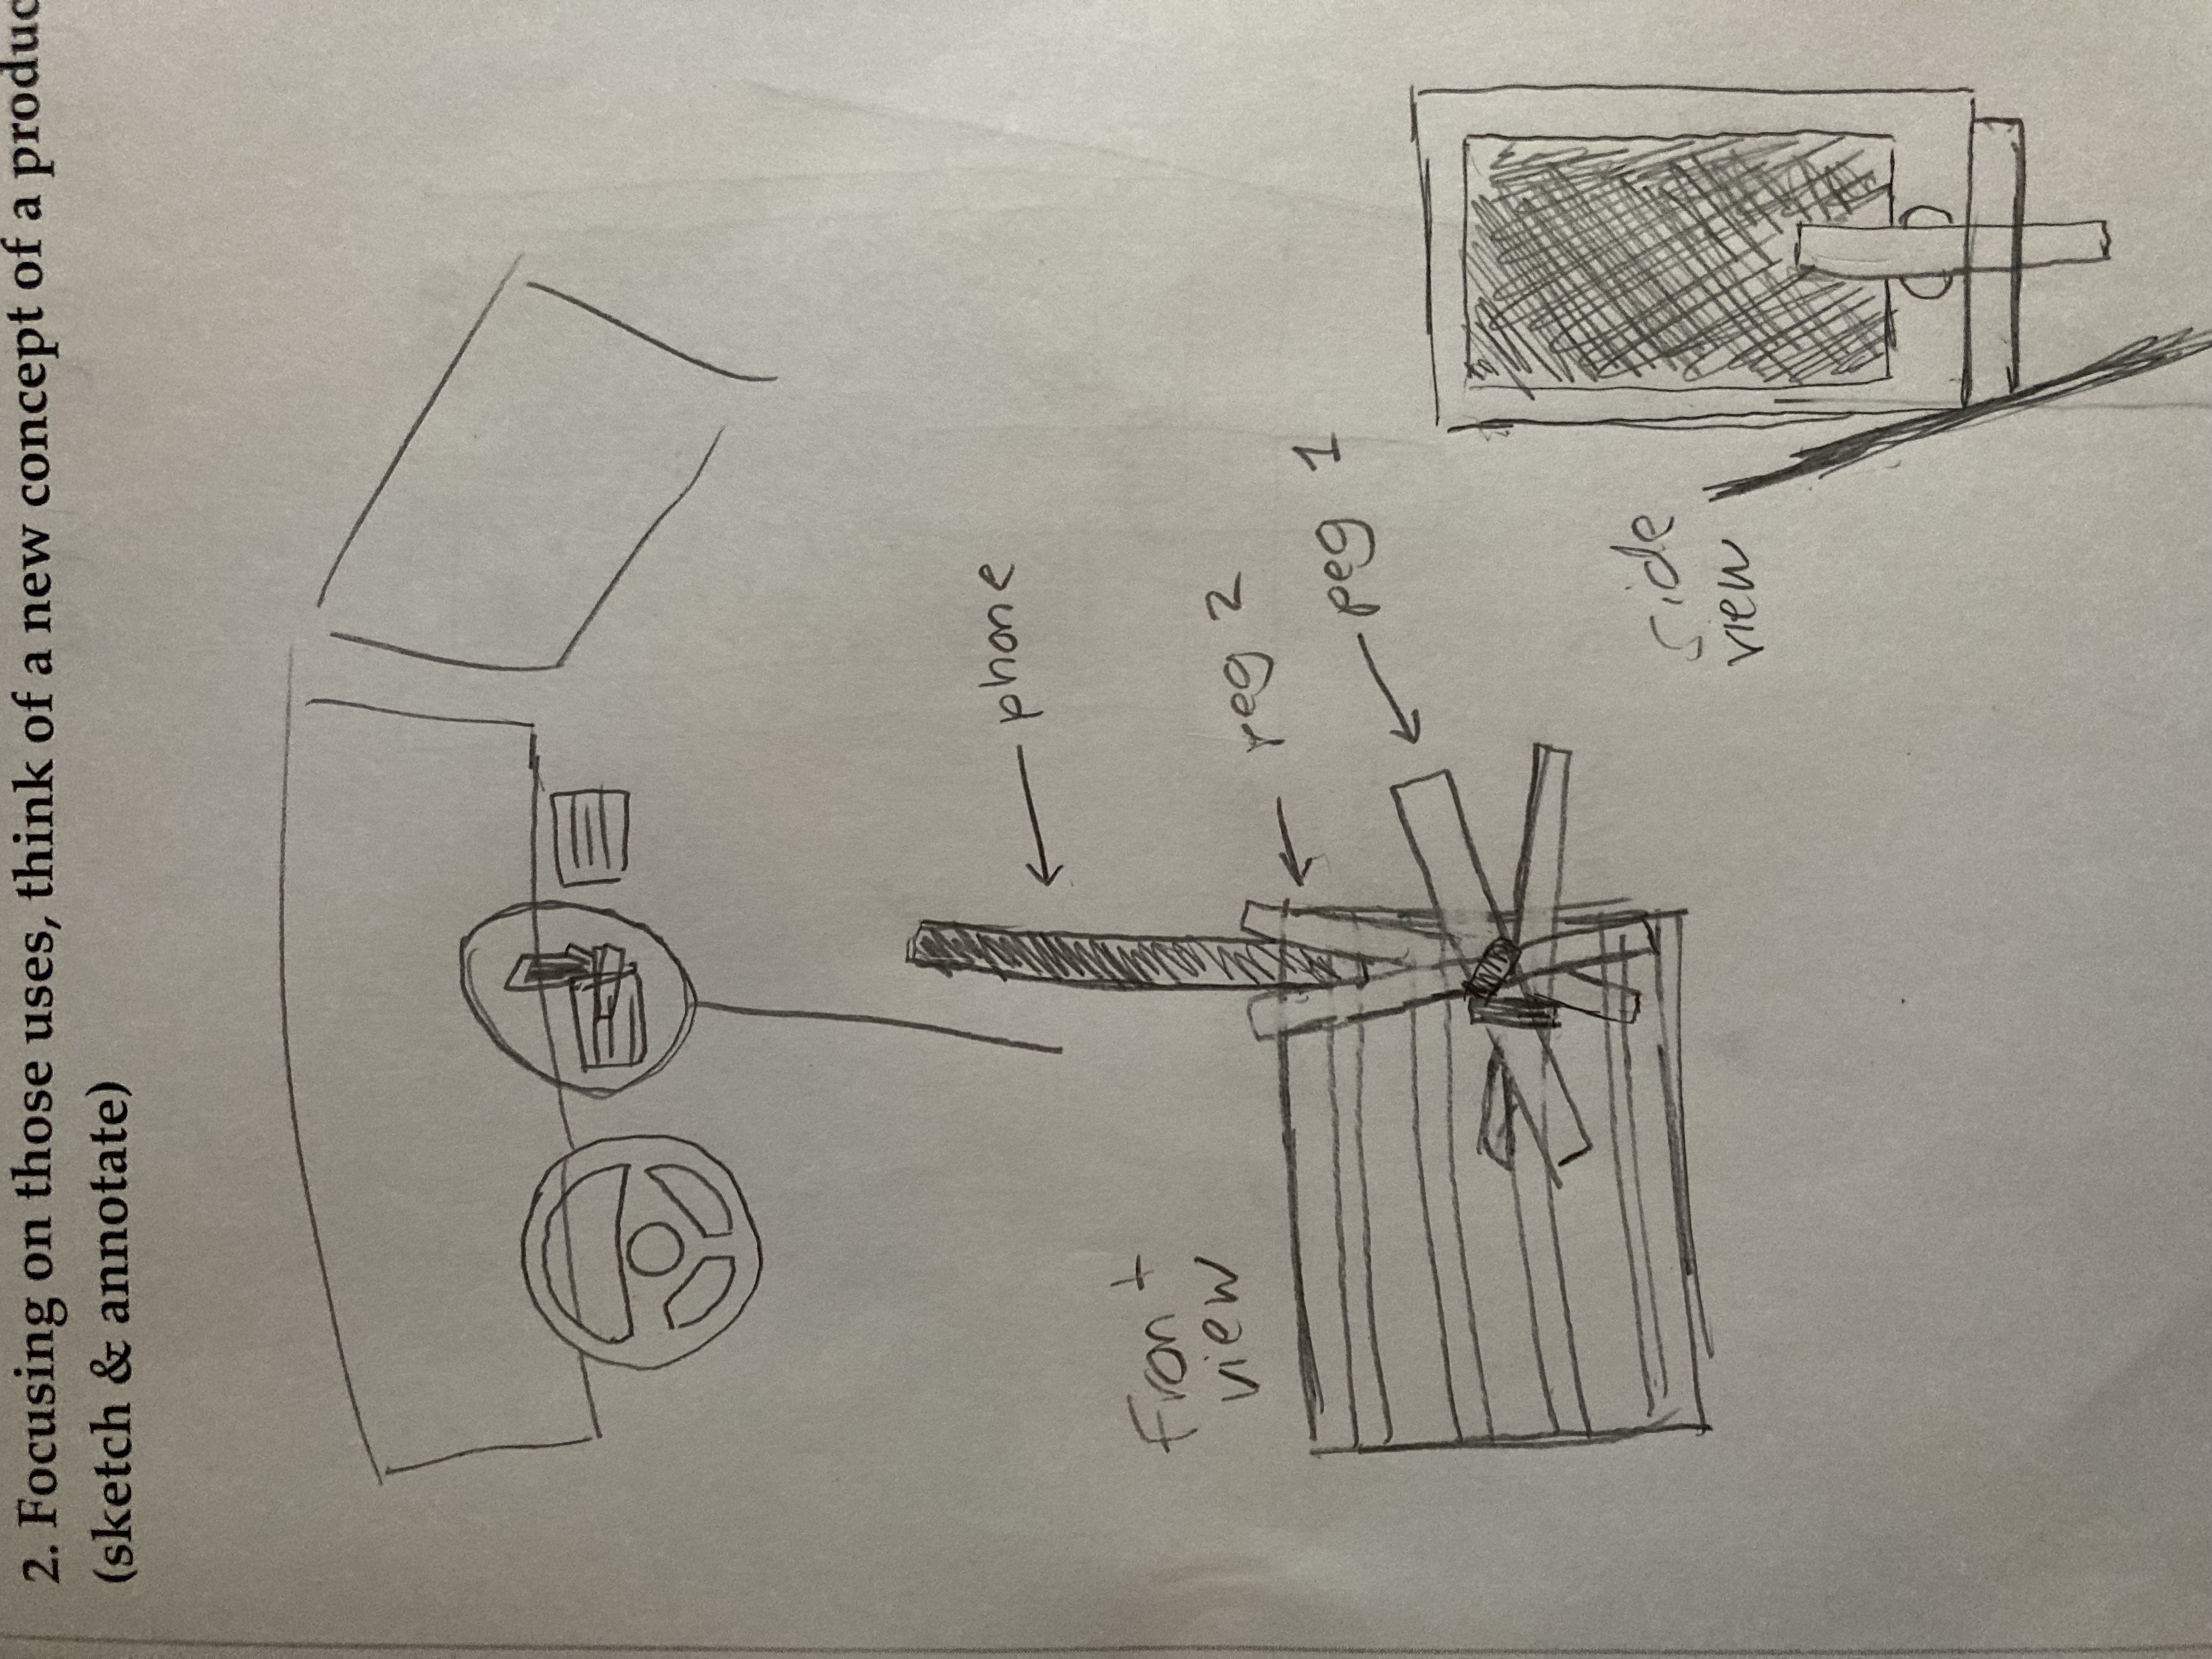 2. Focusing on those uses, think of a new concept of a produc
(sketch & annotate)
phone
Front
view
peg 2
peg 1
side
view